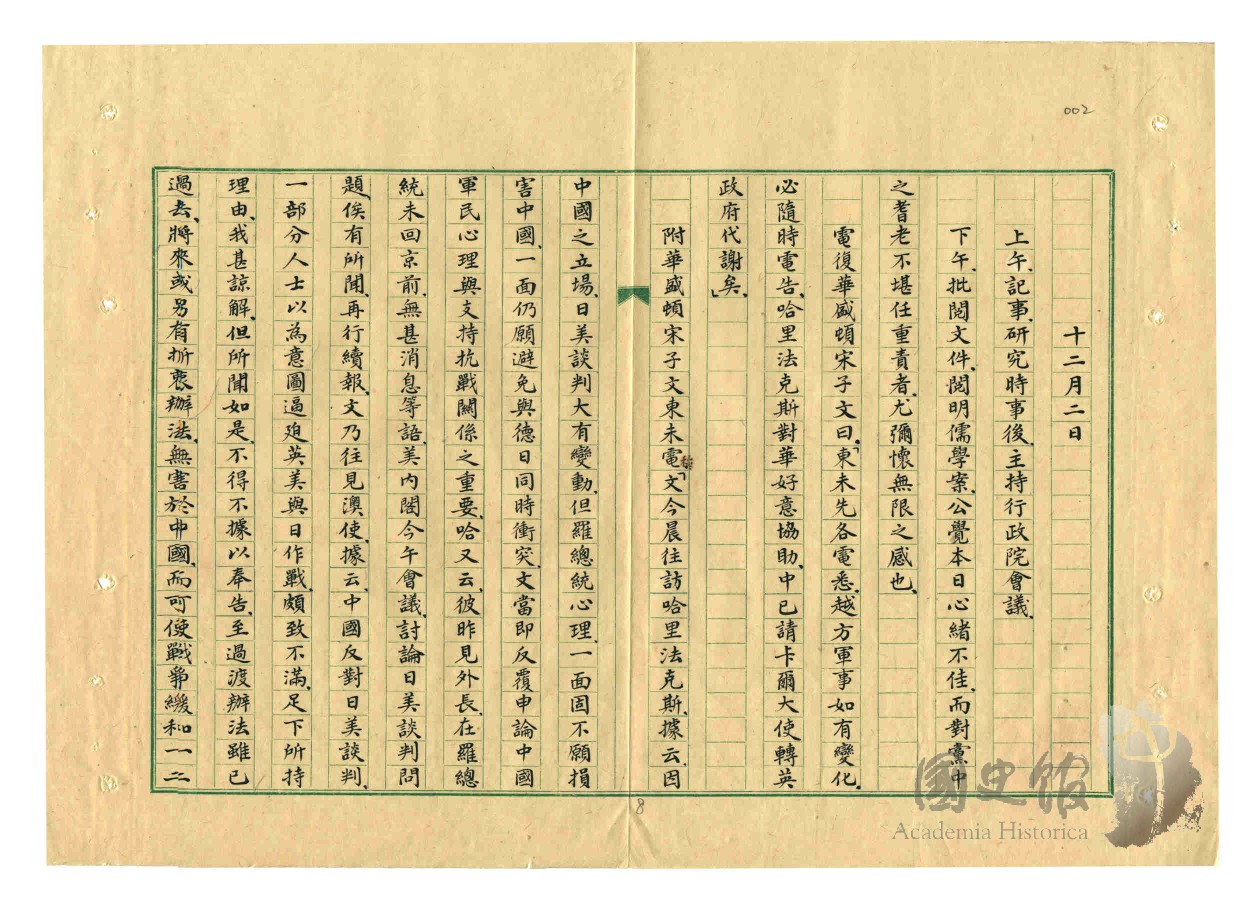 002
十二月二日
上午、記事、研究時事後、主持行政院會議、
下午、批閱文件、閱明儒學案、公覺本日心緒不佳、而對黨中
之耆老不堪任重責者、尤彌懷無限之感也、
電復華盛頓宋子文曰、「東未先各電悉、越方軍事如有變化、
必隨時電告、哈里法克斯對華好意協助、中已請卡爾大使轉英
政府代謝矣、」
附華盛頓宋子文東未電「文今晨往訪哈里法克斯、據云、因
中國之立場、日美談判大有變動、但羅總統心理、一面固不願損
害中國、一面仍願避免與德日同時衝突、文當即反覆申論中國
軍民心理與支持抗戰關係之重要、哈又云、彼昨見外長、在羅總
統未回京前、無甚消息等語、美內閣今午會議、討論日美談判問
題、俟有所聞、再行續報、文乃往見澳使、據云、中國反對日美談判、
一部分人士以為意圖逼迫英美與日作戰、頗致不滿、足下所持
理由、我甚諒解、但所聞如是、不得不據以奉告、至過渡辦法雖已
過去、將來或另有折衷辦法、無害於中國、而可使戰爭緩和一二
8
國史館
Academia Historica